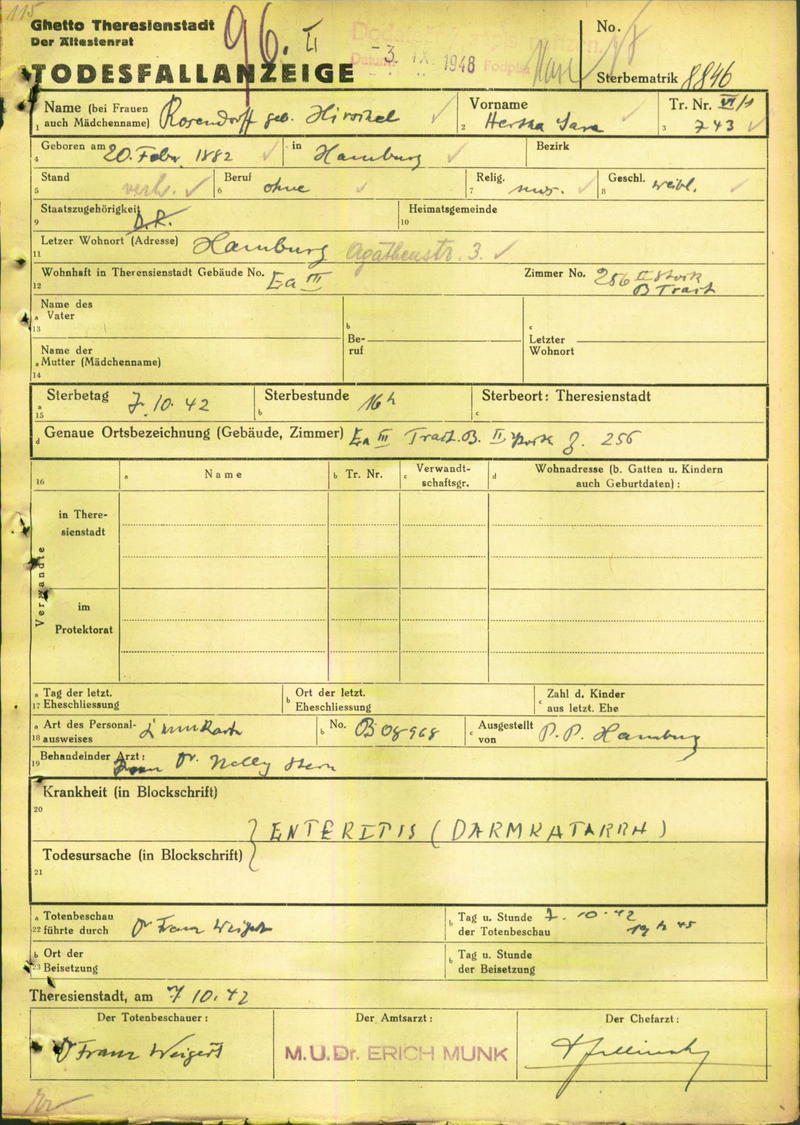 115
Ghetto Theresienstadt
Der Ältestenrat
96. II
-3. IX. 1948
No.
TODESFALLANZEIGE
Sterbematrik 8846
1 Name (bei Frauen auch Mädchenname) Rosendorff geb. Hirschel
2 Vorname Hertha Sara
3 Tr. Nr. VI/1 743
4 Geboren am 20. Febr. 1882 in Hamburg Bezirk
5 Stand verh. 6 Beruf ohne 7 Relig. mos. 8 Geschl. weibl.
9 Staatszugehörigkeit D.R. 10 Heimatsgemeinde
11 Letzer Wohnort (Adresse) Hamburg Agathenstr. 3.
12 Wohnhaft in Therensienstadt Gebäude No. Ea III Zimmer No. 256 II Stock
B Tract
13 a Name des Vater
b Beruf
c Letzter Wohnort
14 a Name der Mutter (Mädchenname)
15 a Sterbetag 7. 10. 42 b Sterbestunde 16 h c Sterbeort: Theresienstadt
d Genaue Ortsbezeichnung (Gebäude, Zimmer) Ea III Tract. B. II Stock Z. 256
16 a Name b Tr. Nr. c Verwandtschaftsgr. d Wohnadresse (b. Gatten u. Kindern auch Geburtdaten) :
Verwandte
in Theresienstadt
im Protektorat
17 a Tag der letzt. Eheschliessung b Ort der letzt. Eheschliessung c Zahl d. Kinder aus letzt. Ehe
18 a Art des Personalausweises Kennkarte b No. B 08968 c Ausgestellt von P.P. Hamburg
19 Behandelnder Arzt: Frau Dr. Nelly Stern
20 Krankheit (in Blockschrift)
ENTERITIS (DARMKATARRH)
21 Todesursache (in Blockschrift)
22 a Totenbeschau führte durch Dr Franz Weigert b Tag u. Stunde der Totenbeschau 7. 10. 42
19 h 45
23 b Ort der Beisetzung b Tag u. Stunde der Beisetzung
Theresienstadt, am 7 10. 42
Der Totenbeschauer : Der Amtsarzt : Der Chefarzt :
Dr Franz Weigert M.U.Dr. ERICH MUNK